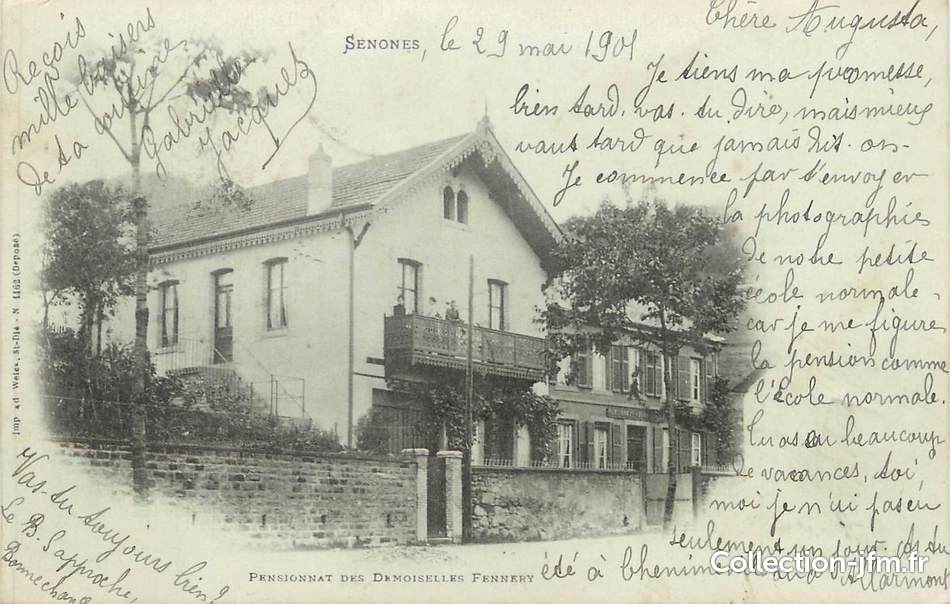 Senones, le 29 mai 1901
Chère Augusta,
Je tiens ma promesse,
bien tard, vas-tu dire, mais mieux
vaut tard que jamais dit-on-
Je commence par t'envoyer
la photographie
de notre petite
école normale-
car je me figure
la pension comme
l'école normale.
Tu as eu beaucoup
de vacances, toi,
moi je n'ai pas eu
seulement un jour. As-tu
été à
Reçois
mille baisers
de ta
Gabrielle
Jacques
Vas-tu toujours bien?
Le B. s'approche,
Bonne chance
Imp. Ad Weick, St-Dié - N 4162 (Déposé)
Pensionnat des Demoiselles Fennery
Collection-jfm.fr